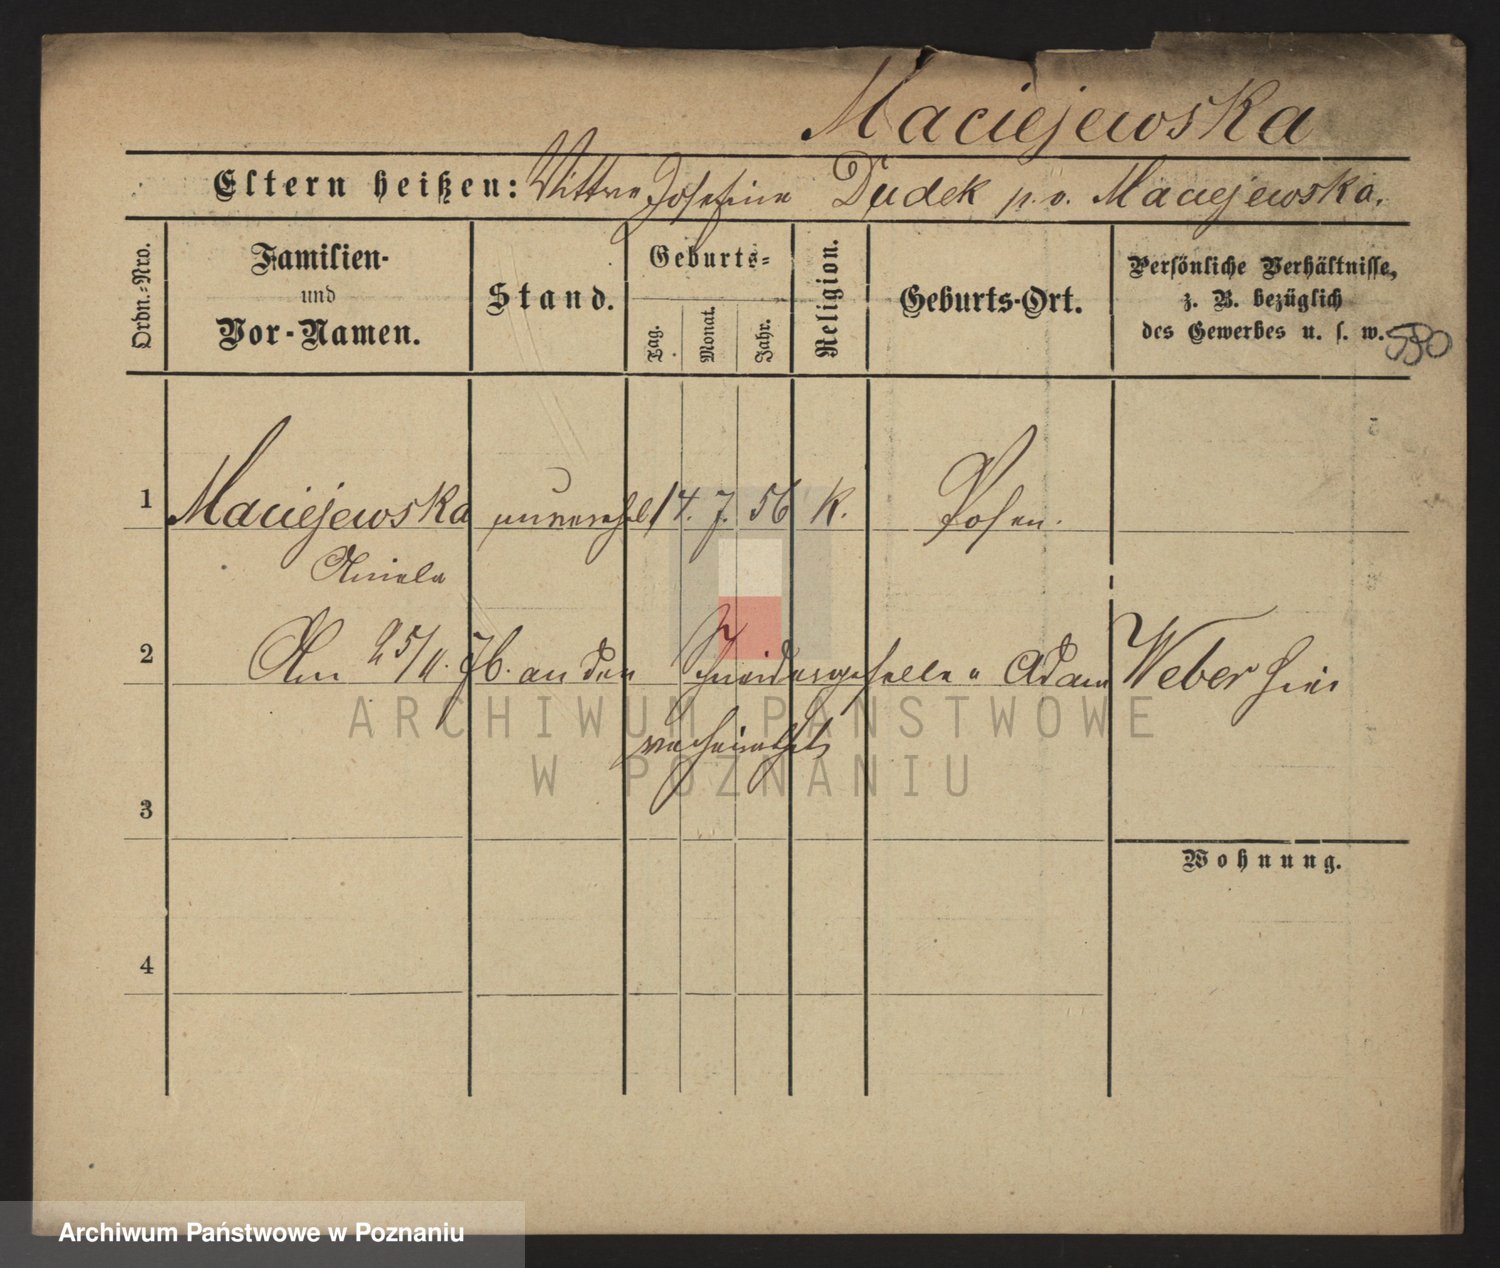 Maciejewska
Eltern heißen: Wittwe Josefine Dudek p. v. Maciejewska.
Ordn.-Nro.
Familien-
und
Vor-Namen.
Stand.
Geburts-
Tag.
Monat.
Jahr.
Religion.
Geburts-Ort.
Persönliche Verhältnisse,
z. B. bezüglich
des Gewerbes u. s. w.
530
1 Maciejewska unverehel. 14. 7. 56 K. Posen.
Aniela
2 Am 25/11. 76. an den Schneidergeselle Adam Weber hier
verheirathet
3
Wohnung.
4
ARCHIWUM PAŃSTWOWE
W POZNANIU
Archiwum Państwowe w Poznaniu